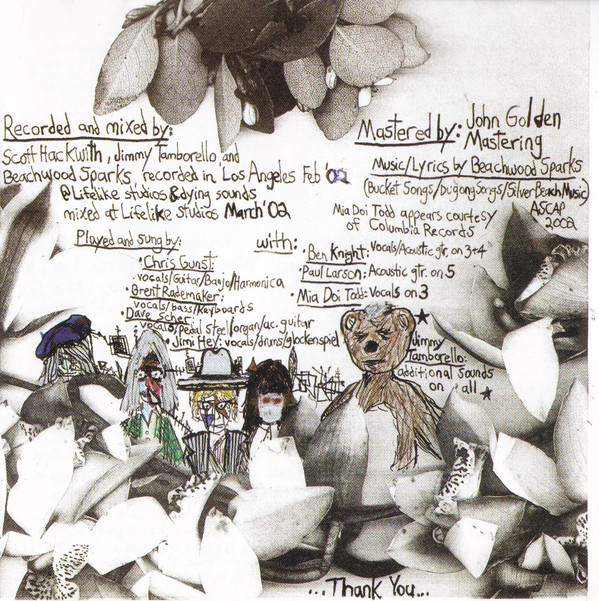 Recorded and mixed by:
Scott Hackwith, Jimmy Tamborello, and
Beachwood Sparks, recorded in Los Angeles Feb '02
@ Lifelike studios & dying sounds
mixed at Lifelike studios March '02
Mastered by: John Golden
Mastering
Music/Lyrics by Beachwood Sparks
(Bucket Songs/Dugong Songs/Silver Beach Music)
ASCAP
2002
Mia Doi Todd appears courtesy
of Columbia Records
Played and sung by:
• Chris Gunst
vocals/Guitar/Banjo/Harmonica
• Brent Rademaker:
vocals/bass/keyboards
• Dave Scher:
vocals/Pedal steel/organ/ac. guitar
• Jimi Hey: vocals/drums/glockenspiel
with:
• Ben Knight: Vocals/Acoustic gtr. on 3+4
• Paul Larson: Acoustic gtr. on 5
• Mia Doi Todd: Vocals on 3
Jimmy
Tamborello:
additional sounds
on all
...Thank You...